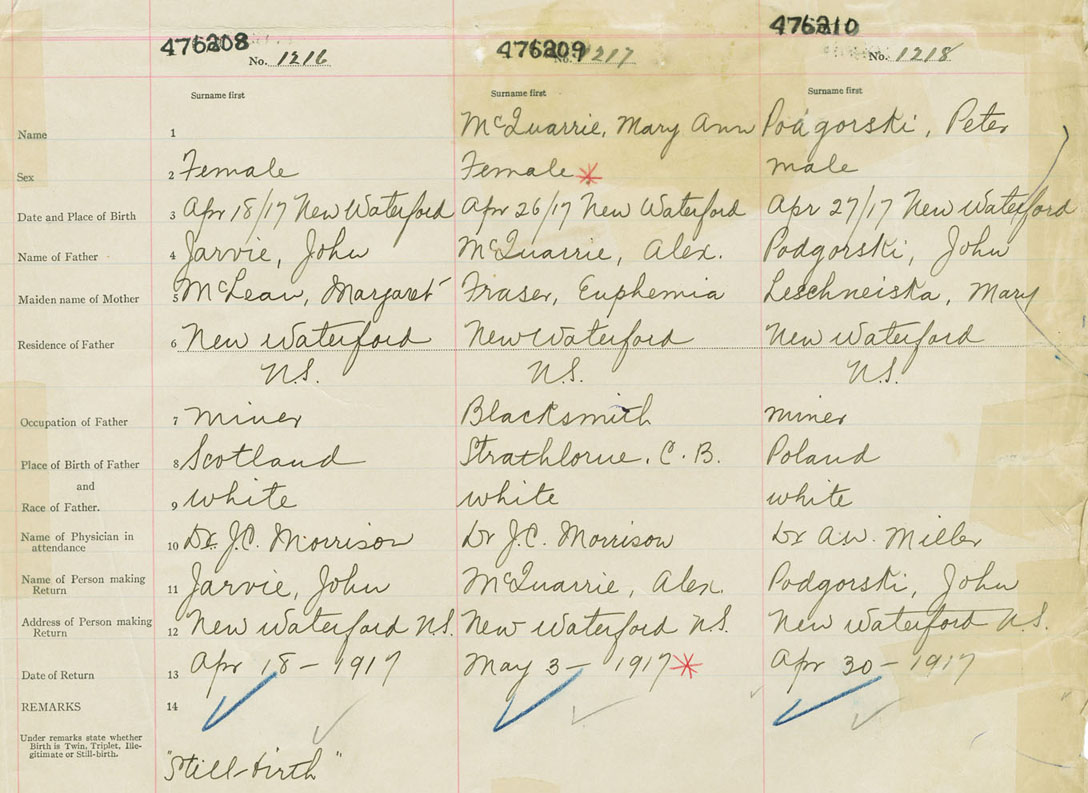 476208 476209 476210
No. 1216 No. 1217 No. 1218
Surname first Surname first Surname first
Name 1 McQuarrie, Mary Ann Podgorski, Peter
Sex 2 Female Female * male
Date and Place of Birth 3 Apr 18/17 New Waterford Apr 26/17 New Waterford Apr 27/17 New Waterford
Name of Father 4 Jarvie, John McQuarrie, Alex. Podgorski, John
Maiden name of Mother 5 McLean, Margaret Fraser, Euphemia Leschneiska, Mary
Residence of Father 6 New Waterford New Waterford New Waterford
N.S. N.S. N.S.
Occupation of Father 7 miner Blacksmith miner
Place of Birth of Father 8 Scotland Strathlorne, C.B. Poland
and
Race of Father. 9 white white white
Name of Physician in
attendance 10 Dr. J.C. Morrison Dr J.C. Morrison Dr A.W. Miller
Name of Person making
Return 11 Jarvie, John McQuarrie, Alex. Podgorski, John
Address of Person making
Return 12 New Waterford N.S. New Waterford N.S. New Waterford N.S.
Date of Return 13 Apr 18 - 1917 May 3 - 1917 * Apr 30 - 1917
REMARKS 14
Under remarks state whether
Birth is Twin, Triplet, Ille-
gitimate or Still-birth.
"Still-birth"